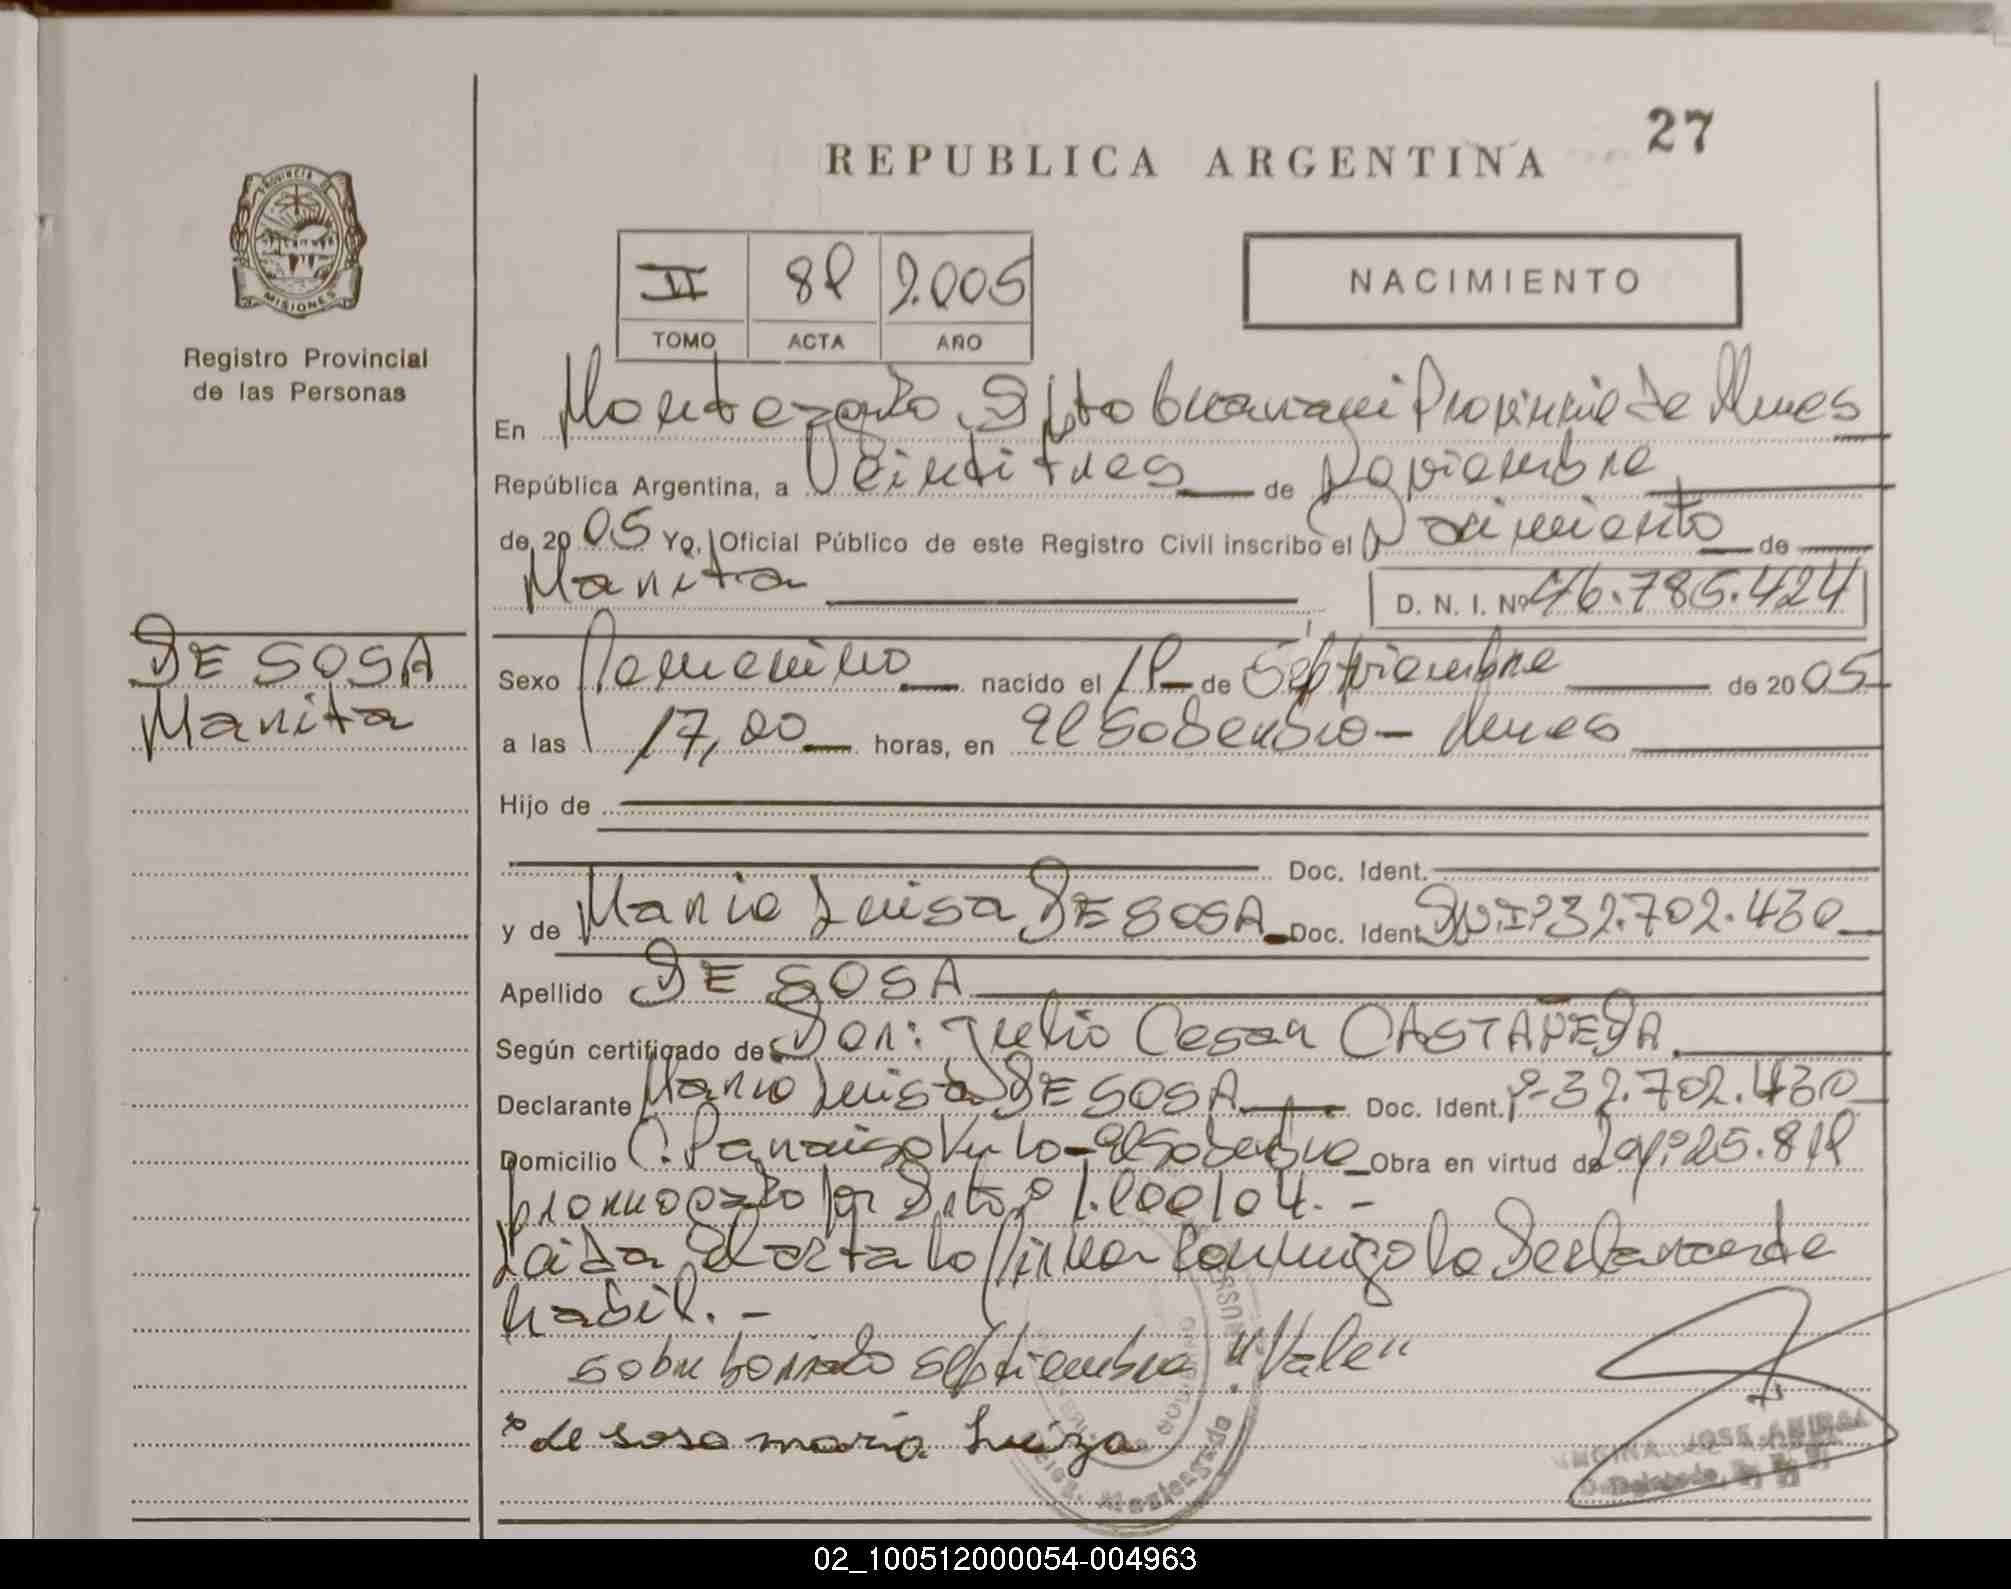 27
REPUBLICA ARGENTINA
PROVINCIA DE
MISIONES
Registro Provincial
de las Personas
II 81 2.005
TOMO ACTA AÑO
NACIMIENTO
En Montecarlo Dpto Provincia de Mnes
República Argentina, a Veintitres de Noviembre
de 2005 Yo, Oficial Público de este Registro Civil inscribo el Nacimiento de
Marita
D. N. I. Nº 46.785.424
DE SOSA
Marita
Sexo Femenino nacido el 11 de Septiembre de 2005
a las 17,00 horas, en El Soberbio - Mnes
Hijo de
Doc. Ident.
y de Maria Luisa DE SOSA Doc. Ident. D.N.I. 32.702.430
Apellido DE SOSA
Según certificado de Dor: Julio Cesar CASTAÑEDA
Declarante Maria Luisa DE SOSA Doc. Ident. 32.702.430
Domicilio C. Paraiso El Soberbio Obra en virtud de Ley 25.819
promulgado por Dcto 1.100/04. -
Leida el acta la firman conmigo la Declarante
habil. -
sobre borrado septiembre "Vale"
de sosa maria Luiza
JOSE ANIBAL
Delegado
02_100512000054-004963